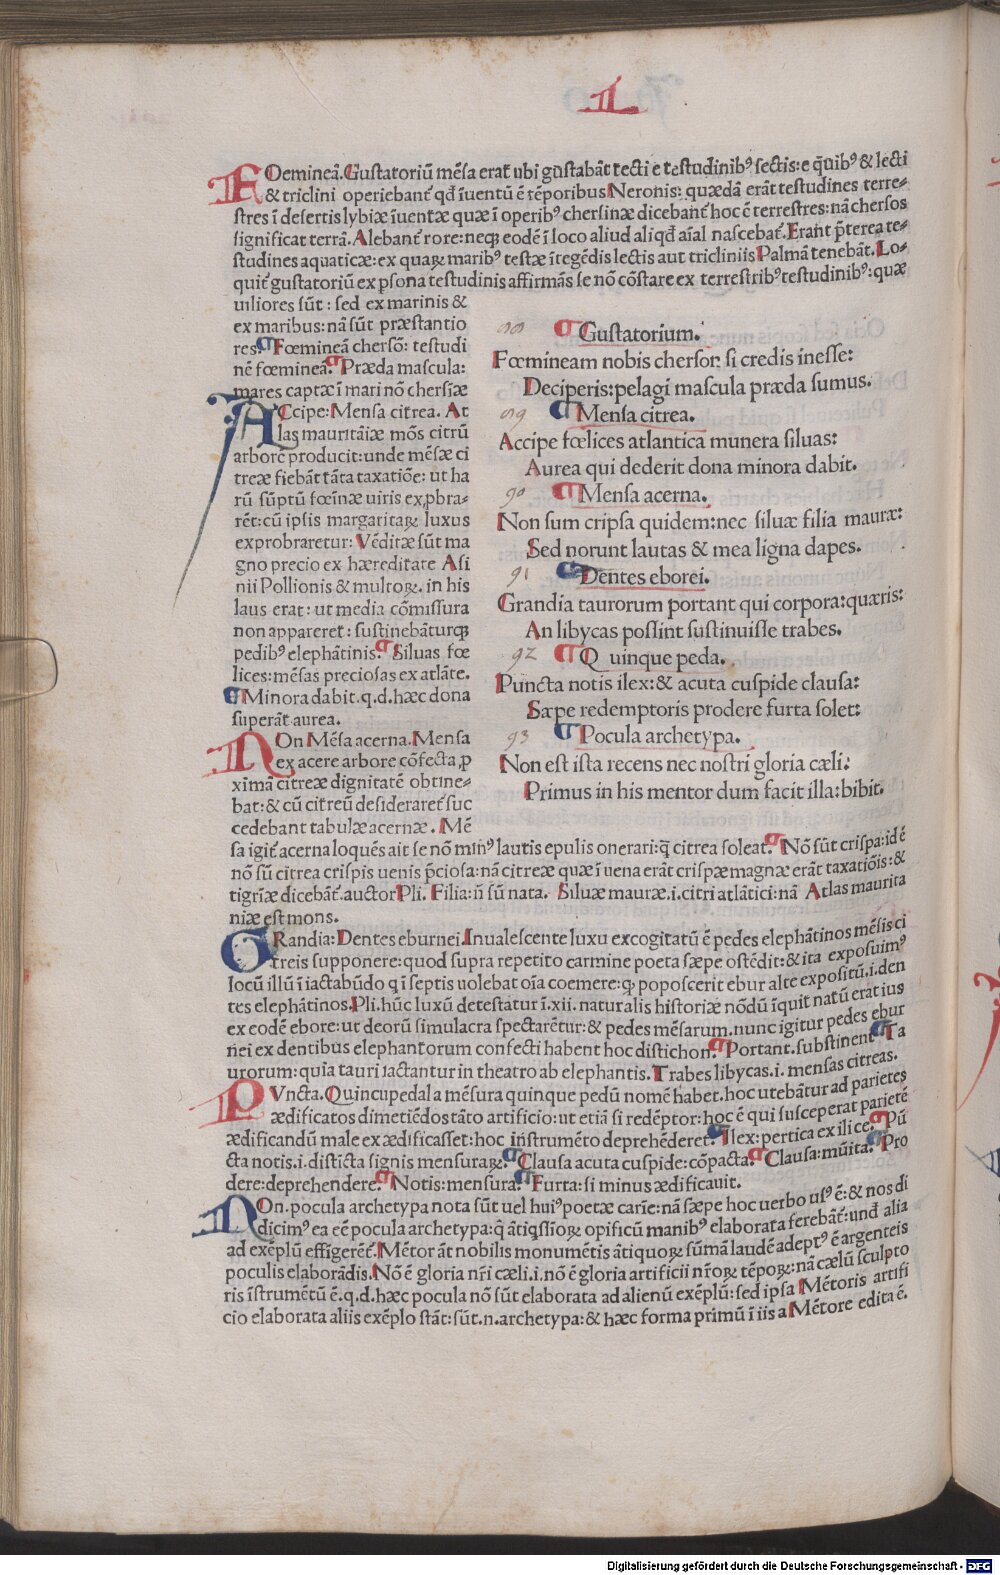 L
FOemineā.Gustatoriū mēsa erat̄ ubi gustabāt tecti e testudinibꝰ sectis:e q̄uibꝰ & lecti
& triclini operiebant̄ qđ īuentū ē tēporibus Neronis: quædā erāt testudines terre-
stres ī desertis lybiæ īuentæ quæ ī operibꝰ chersinæ dicebant̄ hoc ē terrestres:nā chersos
significat terrā. Alebant̄ rore:neqꝫ eodē ī loco aliud aliqđ aīal nascebat̄. Erant p̄terea te-
studines aquaticæ:ex quaꝝ maribꝰ testæ ītegēdis lectis aut tricliniis Palmā tenebāt. Lo-
quit̄ gustatoriū ex ꝑsona testudinis affirmās se nō cōstare ex terrestribꝰ testudinibꝰ:quæ
uiliores sūt : sed ex marinis &
ex maribus:nā sūt præstantio
res. Fœmineā chersō: testudi
nē fœmineā. Præda mascula:
mares captæ ī mari nō chersiæ
ACcipe:Mensa citrea. At
las mauritāiæ mōs citrū
arborē producit:unde mēsæ ci
treæ fiebāt tāta taxatiōe: ut ha
rū sūptū fœīnæ uiris exꝓbra-
rēt:cū ipsis margaritaꝝ luxus
exprobraretur: Vēditæ sūt ma
gno precio ex hæreditate Asi
nii Pollionis & multoꝝ. in his
laus erat: ut media cōmissura
non appareret̄: sustinebāturqꝫ
pedibꝰ elephātinis. Siluas fœ
lices:mēsas preciosas ex atlāte.
Minora dabit.q.d.hæc dona
superāt aurea.
NOn Mēsa acerna. Mensa
ex acere arbore cōfecta,ꝓ
ximā citreæ dignitatē obtine-
bat:& cū citreū desideraret̄ suc
cedebant tabulæ acernæ. Mē
88
Gustatorium.
Fœmineam nobis cherson si credis inesse:
Deciperis:pelagi mascula præda sumus.
89
Mensa citrea.
Accipe fœlices atlantica munera siluas:
Aurea qui dederit dona minora dabit.
90
Mensa acerna.
Non sum crispa quidem:nec siluæ filia mauræ:
Sed norunt lautas & mea ligna dapes.
91
Dentes eborei.
Grandia taurorum portant qui corpora:quæris:
An libycas possint sustinuisse trabes.
92
Quinque peda.
Puncta notis ilex:& acuta cuspide clausa:
Sæpe redemptoris prodere furta solet:
93
Pocula archetypa.
Non est ista recens nec nostri gloria cæli:
Primus in his mentor dum facit illa:bibit.
sa igit̄ acerna loquēs ait se nō minꝰ lautis epulis onerari:q̄ citrea soleat. Nō sūt crispa:id ē
nō sū citrea crispis uenis p̄ciosa:nā citreæ quæ ī uena erāt crispæ magnæ erāt taxatiōis:&
tigrīæ dicebāt.auctor Pli. Filia:ñ sū nata. Siluæ mauræ.i.citri atlātici:nā Atlas maurita
niæ est mons.
GRandia:Dentes eburnei.Inualescente luxu excogitatū ē pedes elephātinos mēsis ci
treis supponere:quod supra repetito carmine poeta sæpe ostēdit:& ita exposuimꝰ
locū illū ī iactabūdo q ī septis uolebat oīa coemere:qꝫ poposcerit ebur alte expositū.i.den
tes elephātinos.Pli.hūc luxū detestatur ī.xii.naturalis historiæ nōdū īquit natū erat ius
ex eodē ebore:ut deorū simulacra spectarētur:& pedes mēsarum.nunc igitur pedes ebur
nei ex dentibus elephantorum confecti habent hoc distichon. Portant.substinent Ta
urorum:quia tauri iactantur in theatro ab elephantis. Trabes libycas.i. mensas citreas.
PVncta.Quincupedal a mēsura quinque pedū nomē habet.hoc utebātur ad parietes
ædificatos dimetiēdos tāto artificio:ut etiā si redēptor:hoc ē qui susceperat parietē
ædificandū male ex ædificasset:hoc instrumēto deprehēderet. Ilex:pertica ex ilice. Pū
cta notis.i.distīcta signis mensuraꝝ. Clausa acuta cuspide:cōpacta. Clausa:mūita. Pro
dere:deprehendere. Notis:mensura. Furta:si minus ædificauit.
NOn.pocula archetypa nota sūt uel huiꝰ poetæ carīe:nā sæpe hoc uerbo usꝰ ē:& nos di
dicimꝰ ea eē pocula archetypa:q̄ ātiqssīoꝝ opificū manibꝰ elaborata ferebāt:unđ alia
ad exēplū effigerēt̄. Mētor āt nobilis monumētis ātiquoꝝ sūmā laudē adeptꝰ ē argenteis
poculis elaborādis.Nō ē gloria nr̄i cæli.i.nō ē gloria artificii nr̄oꝝ tēpoꝝ:nā cælū sculpto
ris īstrumētū ē.q.d.hæc pocula nō sūt elaborata ad alienū exēplū:sed ipsa Mētoris artifi
cio elaborata aliis exēplo stāt:sūt.n.archetypa:& hæc forma primū ī iis a Mētore edita ē.
Digitalisierung gefördert durch die Deutsche Forschungsgemeinschaft - DFG